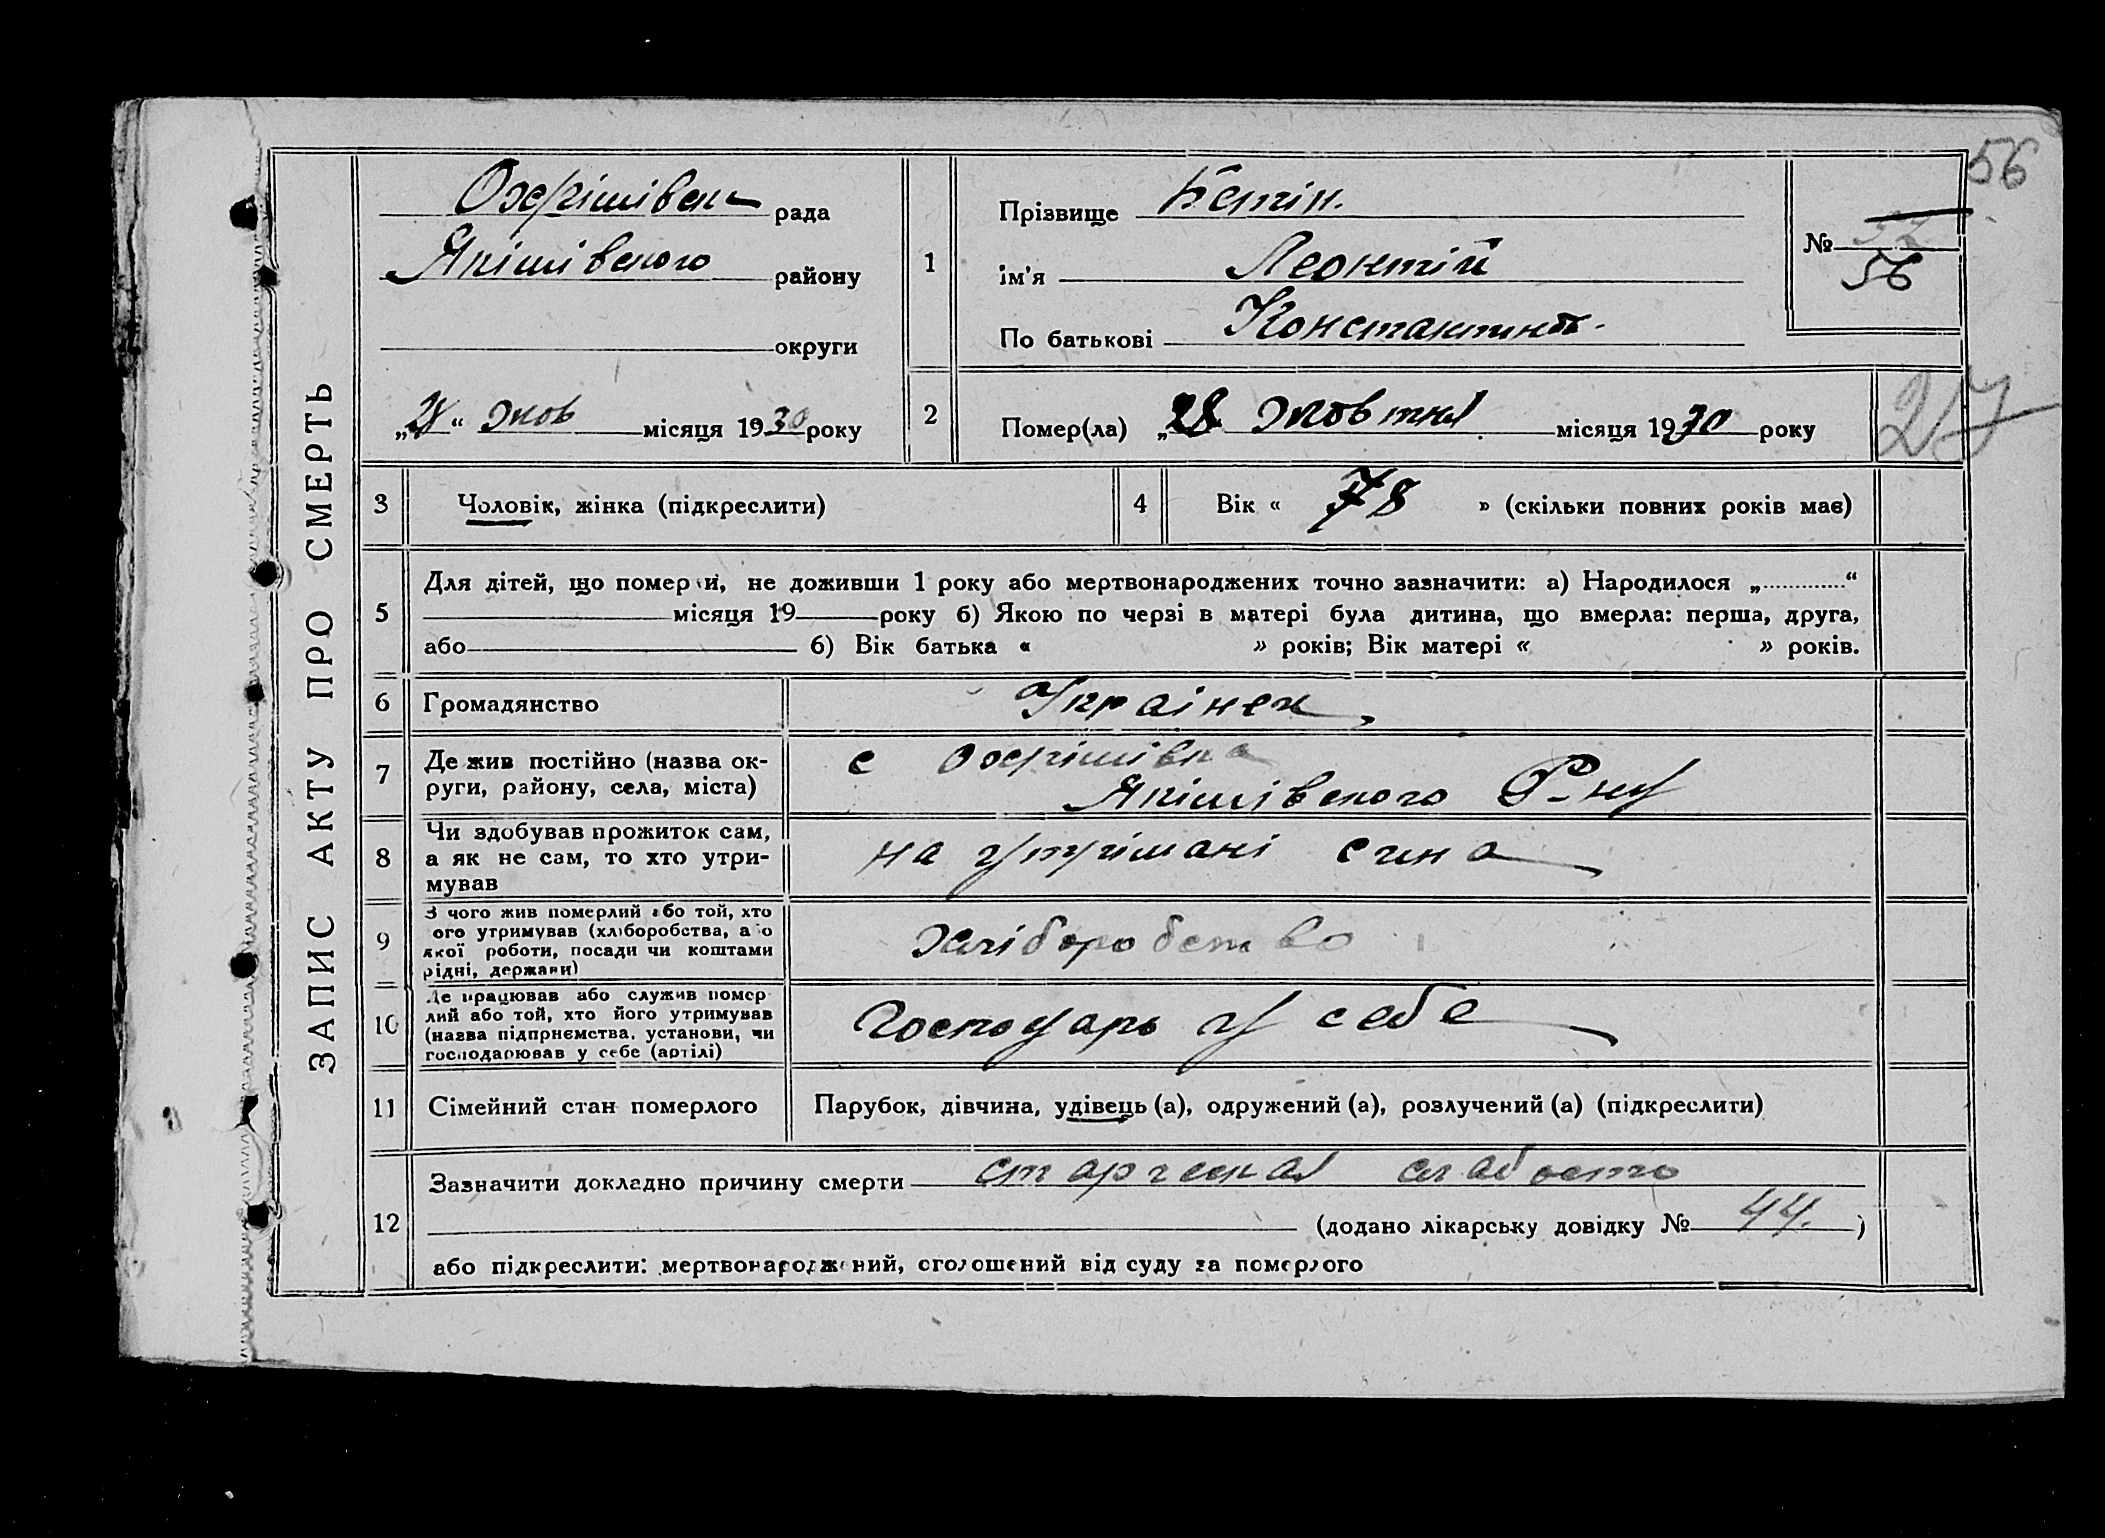 56
ЗАПИС АКТУ ПРО СМЕРТЬ
Охрімівськ рада
Якімівського району
округи
„28“ жов місяця 1930 року
1
Прізвище
Ім'я Леонтій
По батькові
№ 56
2
Помер(ла) „28 жовтня місяця 1930 року
27
3 Чоловік, жінка (підкреслити)
4 Вік « 78 » (скільки повних років має)
5
Для дітей, що померли, не доживши 1 року або мертвонароджених точно зазначити: а) Народилося „ “
місяця 19 року б) Якою по черзі в матері була дитина, що вмерла: перша, друга,
або б) Вік батька « » років; Вік матері « » років.
6 Громадянство Украінец
7 Де жив постійно (назва ок-
руги, району, села, міста)
с Охрімівка
Якімівского Р-ну
8 Чи здобував прожиток сам,
а як не сам, то хто утри-
мував
на утрімані сина
9 З чого жив померлий або той, хто
ого утримував (хліборобства, або
якої роботи, посади чи коштами
рідні, держави)
хліборобство
10 Де працював або служив помер
лий або той, хто його утримував
(назва підприємства, установи, чи
господарював у себе (артілі)
Господарь у себе
11 Сімейний стан померлого Парубок, дівчина, удівець (а), одружений (а), розлучений (а) (підкреслити)
12
Зазначити докладно причину смерти старческая слабость
(додано лікарську довідку № 44. )
або підкреслити: мертвонароджений, оголошений від суду за померлого